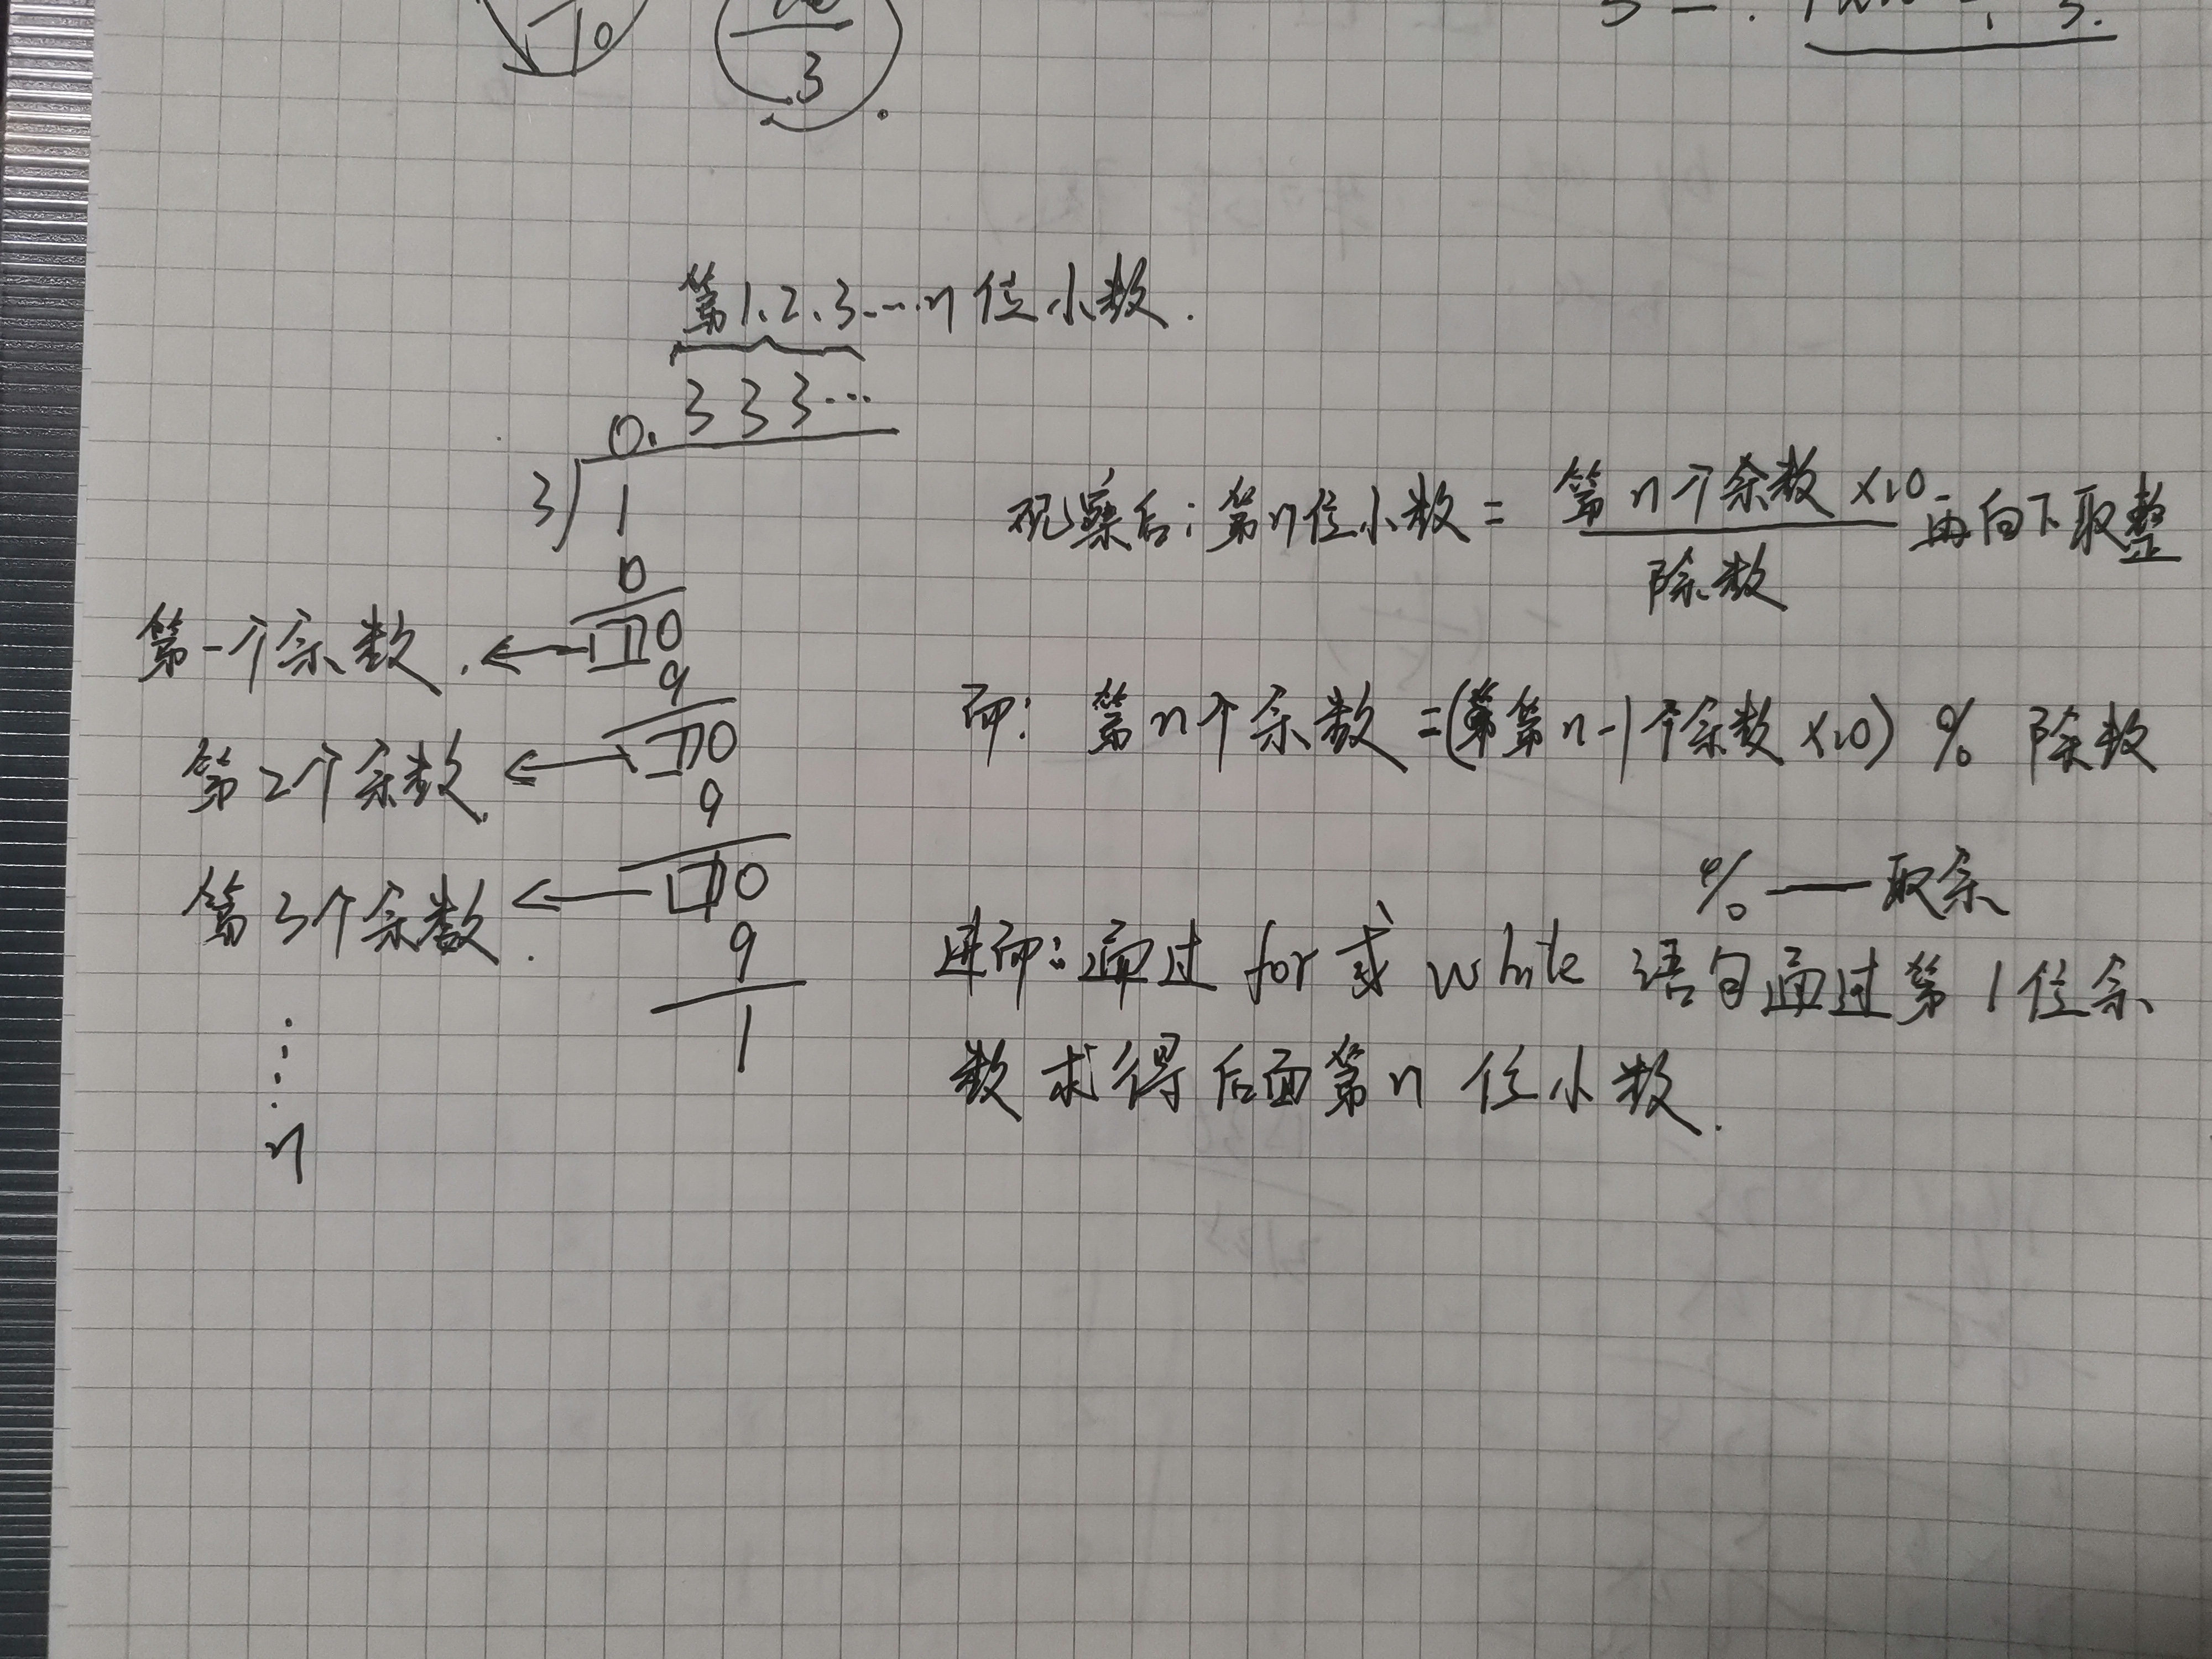 10
3
3
第1.2.3...n位小数.
0.333...
3)1
0
观察后:第n位小数=第n个余数×10/除数 再向下取整
第一个余数. ← 10
9
而: 第n个余数=(第n-1个余数×10) % 除数
第2个余数. ← 10
9
% — 取余
第3个余数. ← 10
9
进而:通过for或while语句通过第1位余
1
数求得后面第n位小数.
n